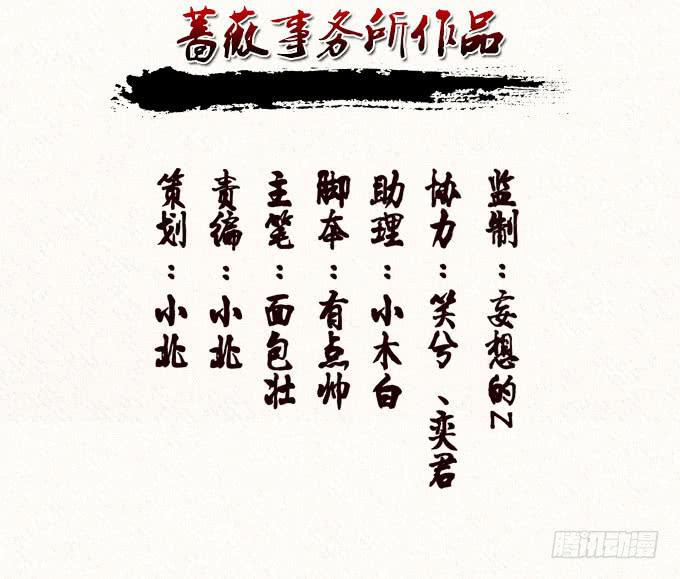 蔷薇事务所作品
监制：妄想的N
协力：笑兮、奕君
助理：小木白
脚本：有点帅
主笔：面包壮
责编：小北
策划：小北
腾讯动漫